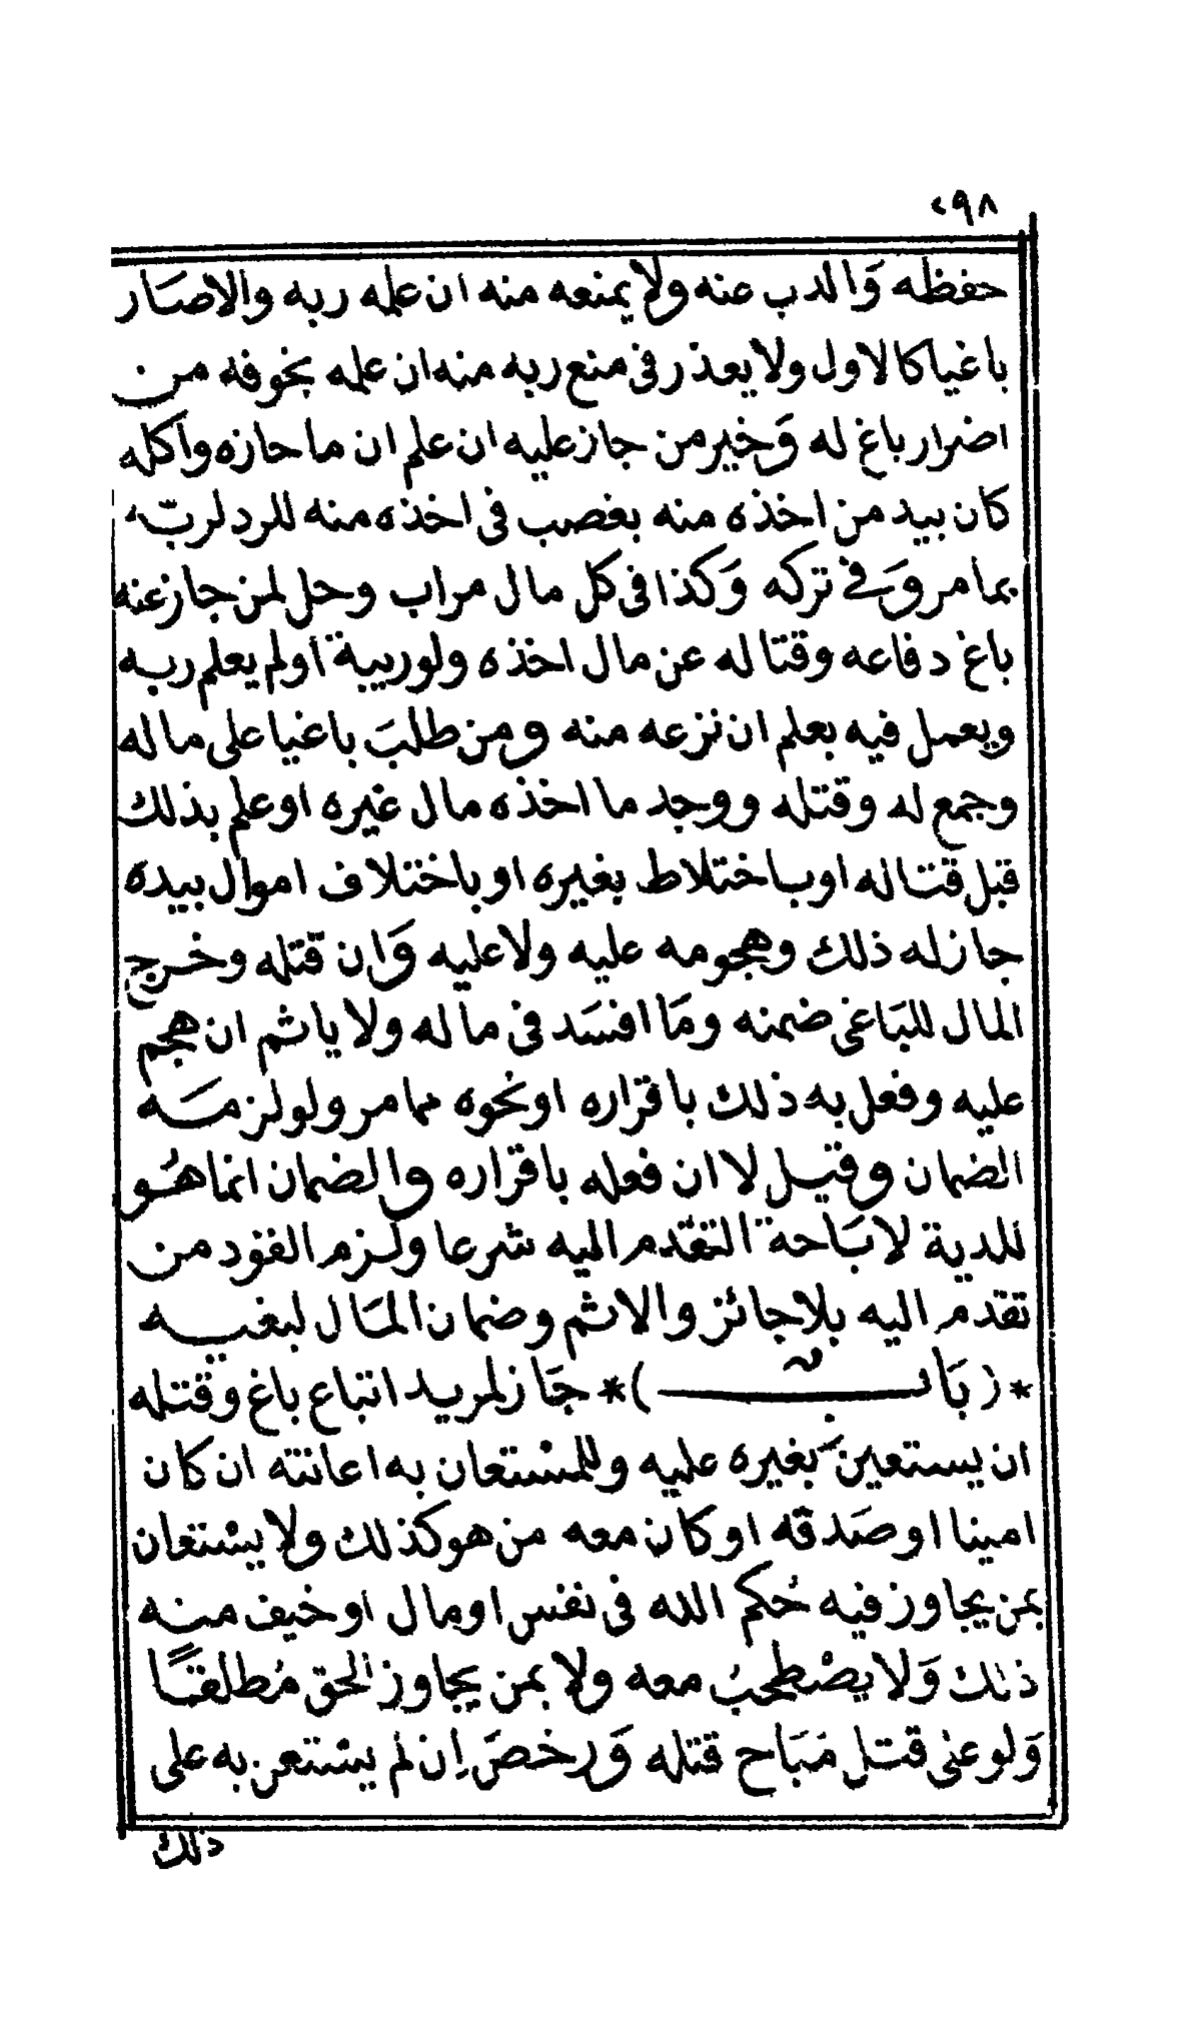 ٢٩٨
حفظه وَالدب عنه ولا يمنعه منه ان علمه ربه والاصَار
باغيا كالاول ولا يعذر فى منع ربه منه ان علمه بخوفه من
اضرار باغ له وَخير من جاز عليه ان علم ان ما حازه واكله
كان بيد من اخذه منه بغصب فى اخذه منه للرد لربّه
بما مر وَفي تركه وَكذا فى كل مال مراب وحل لمن جاز عنه
باغ دفاعه وقتاله عن مال اخذه ولو ريبة أو لم يعلم ربه
ويعمل فيه بعلم ان نزعه منه ومن طلبَ باغيا على ماله
وجمع له وقتله ووجد ما اخذه مال غيره او علم بذلك
قبل قتاله او باختلاط بغيره او باختلاف اموال بيده
جاز له ذلك وهجومه عليه ولا عليه وَان قتله وخرج
المال للبَاغى ضمنه ومَا افسَد فى ماله ولا ياثم ان هجم
عليه وفعل به ذلك باقراره او نحوه مما مر ولو لزمَه
الضمان وقيل لا ان فعله باقراره والضمان انما هُو
للدية لابَاحة التقدم اليه شرعا ولزم القود من
تقدم اليه بلا جائز والاثم وضمان المَال لبغيه
*(بَاب)* جَاز لمريد اتباع باغ وقتله
ان يستعين بغيره عليه وللمسْتعان به اعانته ان كان
امينا او صَدقه او كان معه من هو كذلك ولا يسْتعان
بمن يجاوز فيه حُكم الله فى نفس او مال أو خيف منه
ذلك وَلا يصْطحبُ معه ولا بمن يجاوز الحق مُطلقًا
وَلو عنى قتل مَبَاح قتله وَرخصَ اِن لم يسْتعن به على
ذلك